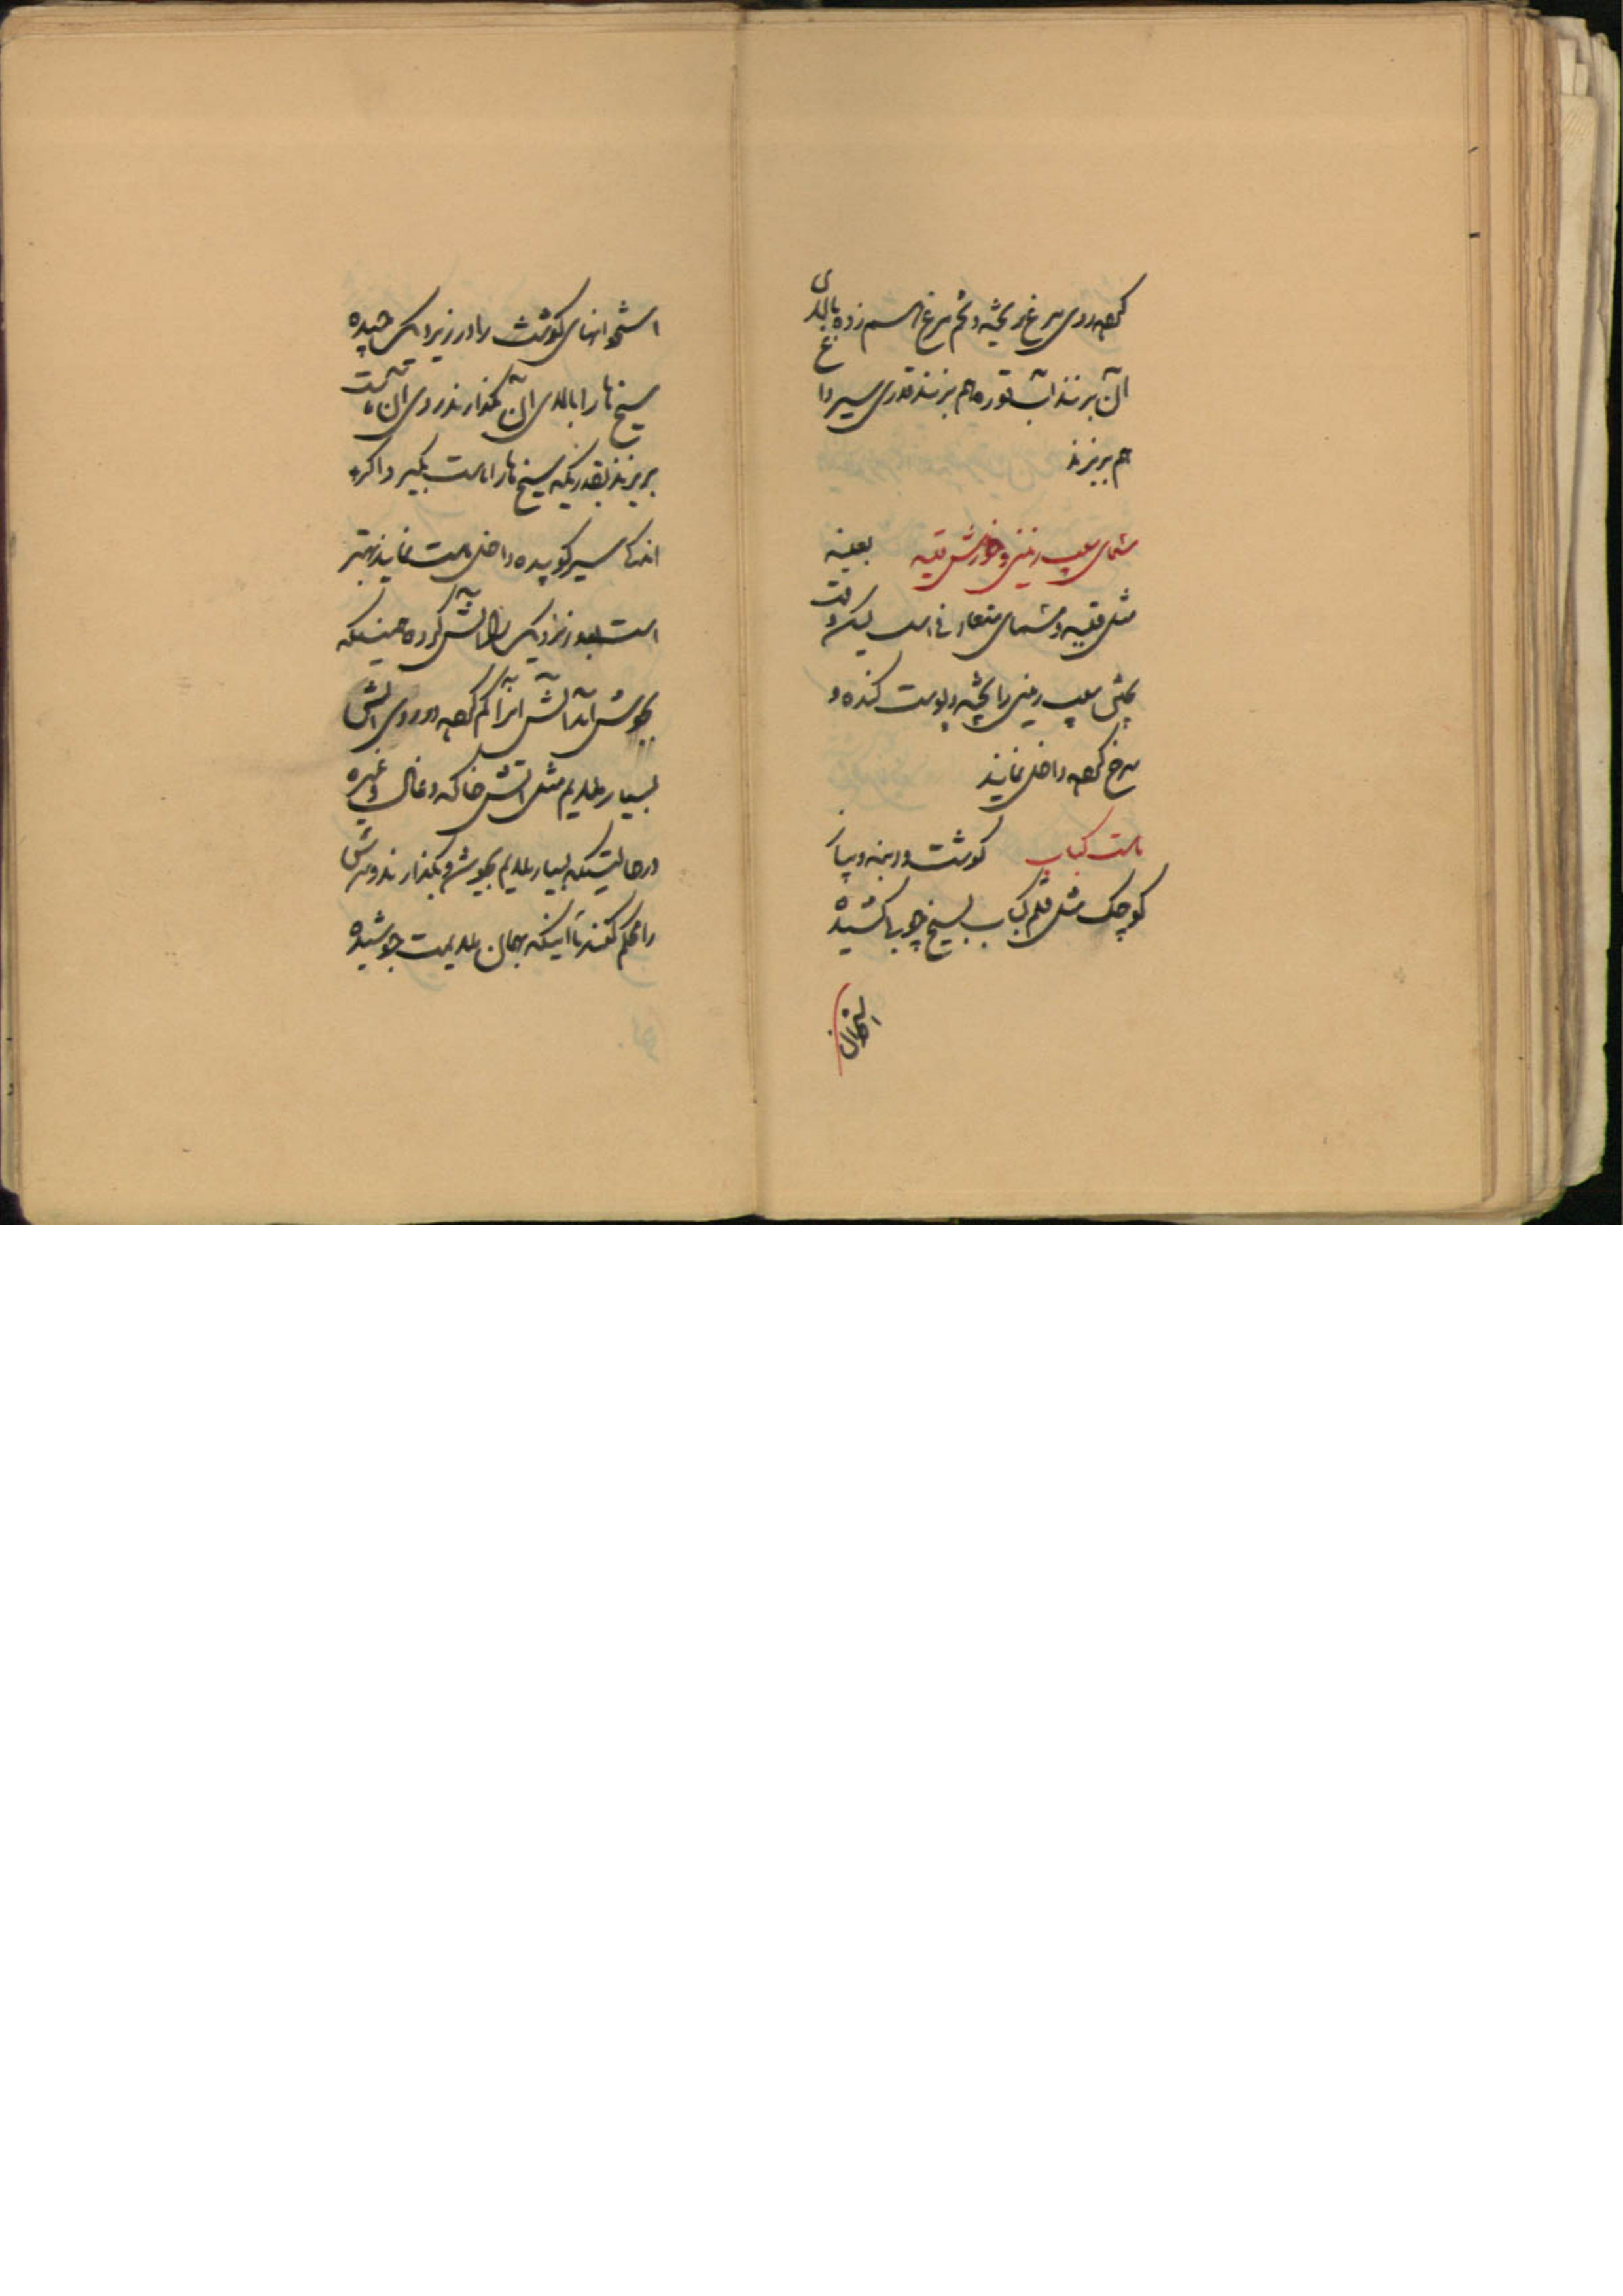 کرده روی مرغ ریخته و تخم مرغ هم زده بالای
آن بریزند آب قوره هم بریزند قدری سیر را
هم بریزند
مسمای سیب زمینی و خورش قیمه بعینه
مثل قیمه و مسمای متعارفی است لیکن وقت
پختن سیب زمینی را پخته و پوست کنده و
سرخ کرده داخل نمایند
ماست کباب گوشت و دنبه و پیاز
کوچک مثل قلم کباب بسیخ چوبها کشیده
استخوان
استخوانهای گوشت را در زیر دیک چیده
سیخ ها را بالای آن بگذارند روی آن ماست
بریزند بقدریکه سیخ ها را ماست بگیرد اگر
اندکی سیر کوبیده داخل ماست نمایند بهتر
است بعد در نزدیک آتش کرده همینکه
بجوش آمد آتش آنرا کم کرده در روی آتش
بسیار ملایم مثل آتش خاکه ذغال و غیره
در حالتیکه بسیار ملایم بجوشد بگذارند و سرش
را محکم کنند تا اینکه بهمان ملایمت جوشیده